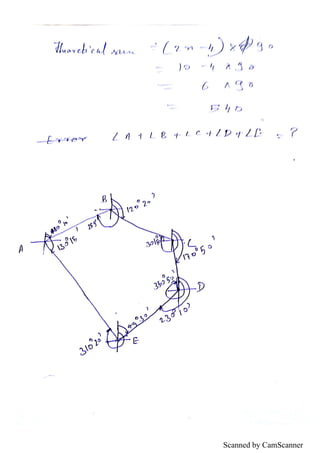 Theoretical sum = (2n-4) × 90
= 10 - 4 × 90
= 6 × 90
= 540
Error ∠A + ∠B + ∠C + ∠D + ∠E = ?
B
120°20'
A
130°15'
C
170°50'
D
230°10'
310°20'
E
Scanned by CamScanner